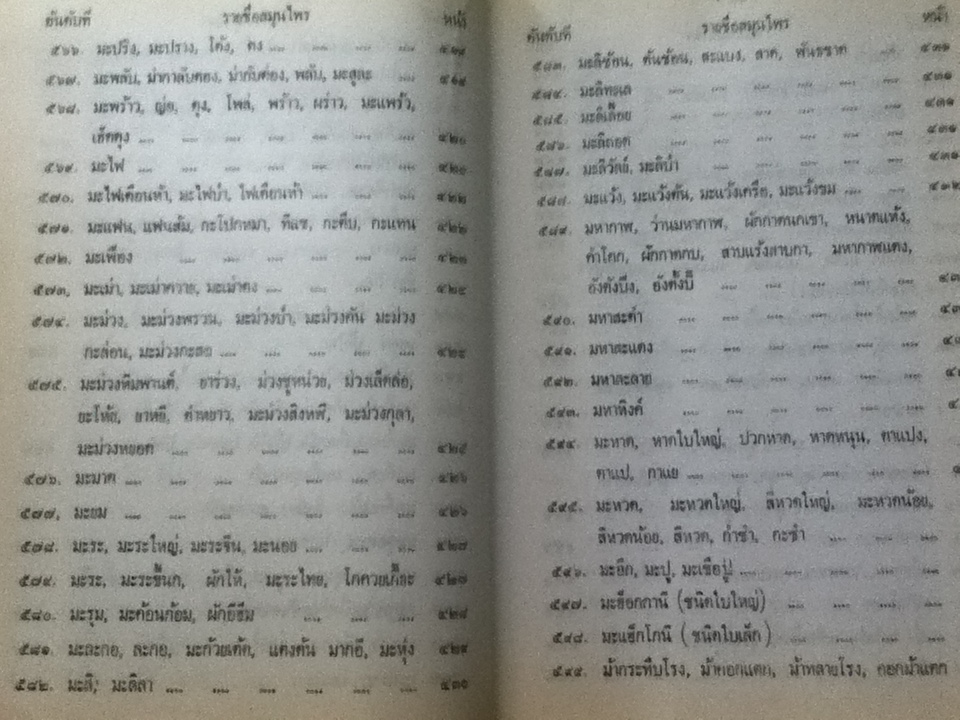 อันดับที่ รายชื่อสมุนไพร หน้า
๕๖๖. มะปริง, มะปราง, โค้ง, คง .... .... .... ....
๕๖๗. มะพลับ, ม่ากลับทอง, พลับ, มะสูละ .... ๔๑๙
๕๖๘. มะพร้าว, ดุง, โพล่, พร้าว, ผร่าว, มะแพร้ว,
เฮ็ดดุง .... .... .... .... .... .... ๔๒๐
๕๖๙. มะไฟ .... .... .... .... .... .... ๔๒๑
๕๗๐. มะไฟเดือนห้า, มะไฟป่า, ไฟเดือนห้า .... .... .... ๔๒๒
๕๗๑. มะแฟน, แฟนส้ม, กะโปกหมา, ทีแซ, กะตีบ, กะแทน ๔๒๒
๕๗๒. มะเฟือง .... .... .... .... .... ๔๒๓
๕๗๓. มะเม่า, มะเม่าควาย, มะเม่าดง .... .... .... .... ๔๒๔
๕๗๔. มะม่วง, มะม่วงพรวน, มะม่วงป่า, มะม่วงคัน มะม่วง
กะล่อน, มะม่วงกะสอ .... .... .... .... .... ๔๒๔
๕๗๕. มะม่วงหิมพานต์, ยาร่วง, ม่วงชูหน่วย, ม่วงเล็ดล่อ,
ยะโห้ย, ยาหยี, ตำหยาว, มะม่วงสิงหฬ, มะม่วงกุลา,
มะม่วงหยอด .... .... .... .... .... .... ๔๒๕
๕๗๖. มะมาด .... .... .... .... .... .... ๔๒๖
๕๗๗. มะยม .... .... .... .... .... .... ๔๒๖
๕๗๘. มะระ, มะระใหญ่, มะระจีน, มะนอย .... .... .... ๔๒๗
๕๗๙. มะระ, มะระขี้นก, ผักไห่, มะระไทย, ๔๒๗
๕๘๐. มะรุม, มะค้อนก้อม, ผักอีฮึม .... .... .... .... ๔๒๘
๕๘๑. มะละกอ, ละกอ, มะก้วยเท้ด, แตงต้น มากอี, มะหุ่ง ๔๒๙
๕๘๒. มะลิ, มะลิลา .... .... .... .... .... .... ๔๓๐
อันดับที่ รายชื่อสมุนไพร หน้า
๕๘๓. มะลิซ้อน, ลาด, .... ๔๓๑
๕๘๔. มะลิทะเล .... .... .... .... .... ๔๓๑
๕๘๕. มะลิเลื้อย .... .... .... .... .... ๔๓๑
๕๘๖. มะลิถอด .... .... .... .... .... ๔๓๑
๕๘๗. มะลิวัลย์, มะลิป่า .... .... .... ....
๕๘๘. มะแว้ง, มะแว้งต้น, มะแว้งเครือ, มะแว้งขม .... .... ๔๓๒
๕๘๙. มหากาฬ, ว่านมหากาฬ, ผักกาดนกเขา, หนาดแห้ง,
คำโคก, ผักกาดกบ, สาบแร้งสาบกา, มหากาฬแดง,
.... .... .... ....
๕๙๐. มหาละดำ .... .... .... .... ....
๕๙๑. มหาสะแดง .... .... .... .... ....
๕๙๒. มหาละลาย .... .... .... .... ....
๕๙๓. มหาหิงค์ .... .... .... .... ....
๕๙๔. มะหาด, หาดใบใหญ่, ปวกหาด, หาดหนุน, ตาแปง,
ตาแป, กาแย .... .... .... .... ....
๕๙๕. มะหวด, มะหวดใหญ่, สีหวดใหญ่, มะหวดน้อย,
สีหวดน้อย, สีหวด, กำซำ, กะซำ .... .... ....
๕๙๖. มะอึก, มะปู่, มะเขือปู่ .... .... .... ....
๕๙๗. มะฮ็อกกานี (ชนิดใบใหญ่) .... .... .... ....
๕๙๘. มะแฮ็กโกนี (ชนิดใบเล็ก) .... .... .... ....
๕๙๙. ม้ากระทืบโรง, ม้าคอกแตก, ม้าทลายโรง, คอกม้าแตก